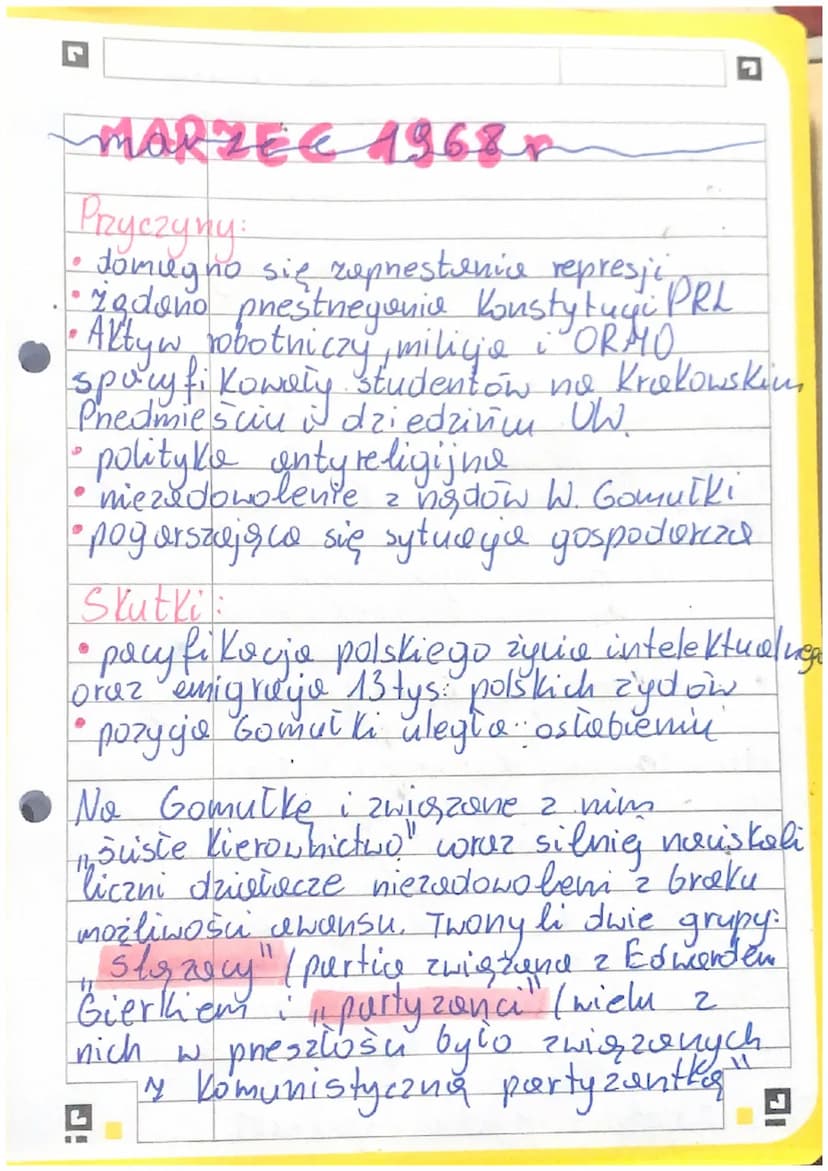 MARZEC 1968 r
marzec
Przyczyny:
• domagno się zaprzestania represji
• żądano przestrzegania Konstytucji PRL
• Aktyw robotniczy, milicja i ORMO
spacyfikowały studentów na Krakowskim
Przedmieściu i dziedzińcu UW.
• polityka antyreligijna
• niezadowolenie z rządów W. Gomułki
• pogarszająca się sytuacja gospodarcza
Skutki:
• pacyfikacja polskiego życia intelektualnego
oraz emigracja 13 tys. polskich żydów
• pozycja Gomułki uległa osłabieniu
Na Gomułkę i związane z nim
„ściste kierownictwo" coraz silniej naciskali
liczni działacze niezadowoleni z braku
możliwości awansu. Tworzyli dwie grupy:
„Ślązacy" (partia związana z Edwardem
Gierkiem i „partyzanci" (wielu z
nich w przeszłości było związanych
z komunistyczną partyzantką"